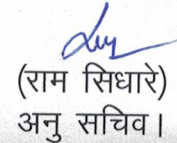 (राम सिधारे)
अनु सचिव।